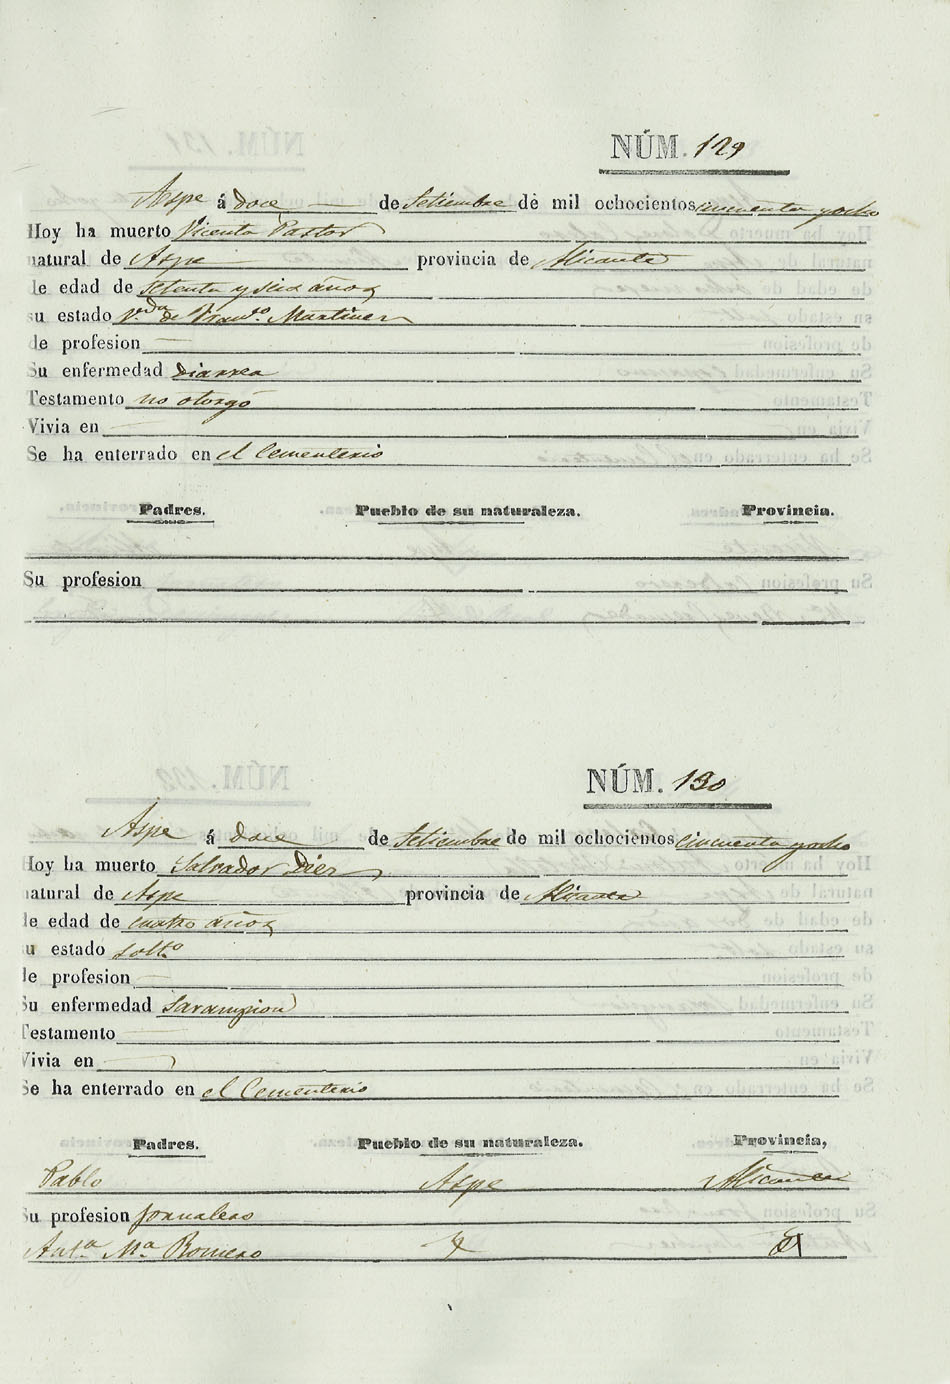 NÚM. 129
Aspe á doce de Setiembre de mil ochocientos cincuenta y ocho
Hoy ha muerto Vicenta Pastor
natural de Aspe provincia de Alicante
de edad de setenta y seis años
su estado V.da de Franco. Martinez
de profesion
Su enfermedad diarrea
Testamento no otorgó
Vivia en
Se ha enterrado en el Cementerio
Padres. Pueblo de su naturaleza. Provincia.
Su profesion
NÚM. 130
Aspe á doce de Setiembre de mil ochocientos cincuenta y ocho
Hoy ha muerto Salvador Diez
natural de Aspe provincia de Alicante
de edad de cuatro años
su estado solto
de profesion
Su enfermedad Sarampion
Testamento
Vivia en
Se ha enterrado en el Cementerio
Padres. Pueblo de su naturaleza. Provincia,
Pablo Aspe Alicante
Su profesion Jornalero
Anta. Ma. Romero